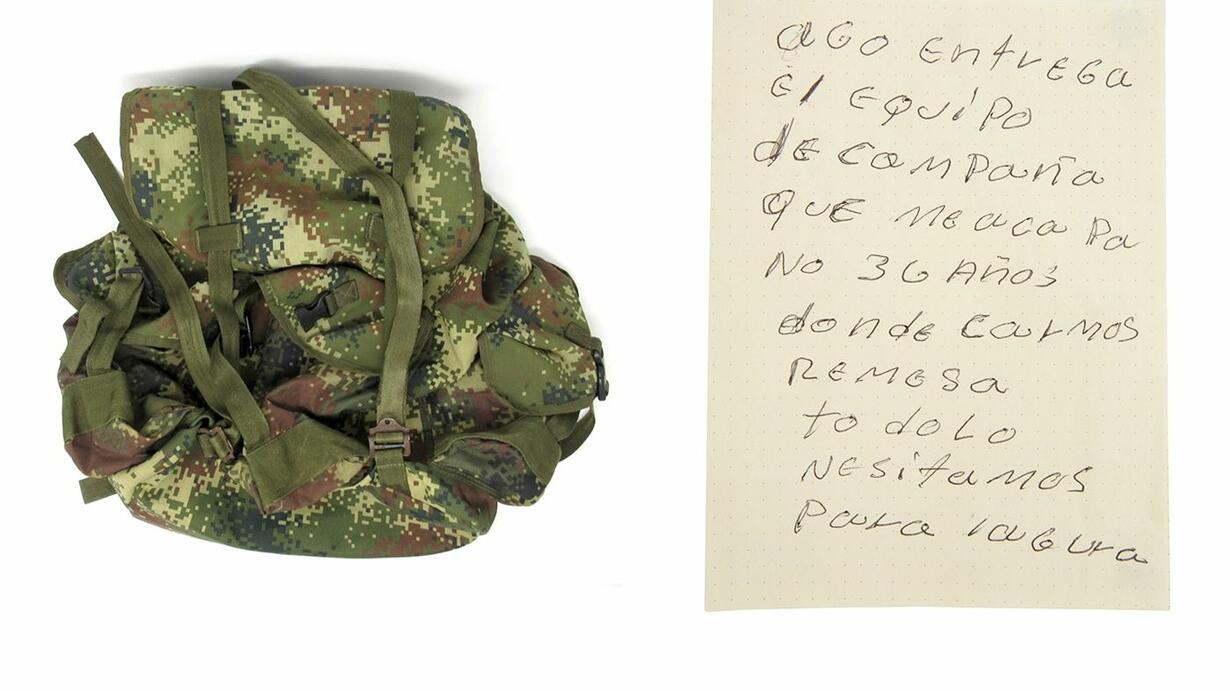 aGo EntrEGa
El EQUiPo
dE ComPañia
QuE meacaPa
No 36 Años
donde carmos
REMESa
to do Lo
NESitamos
Para laGura